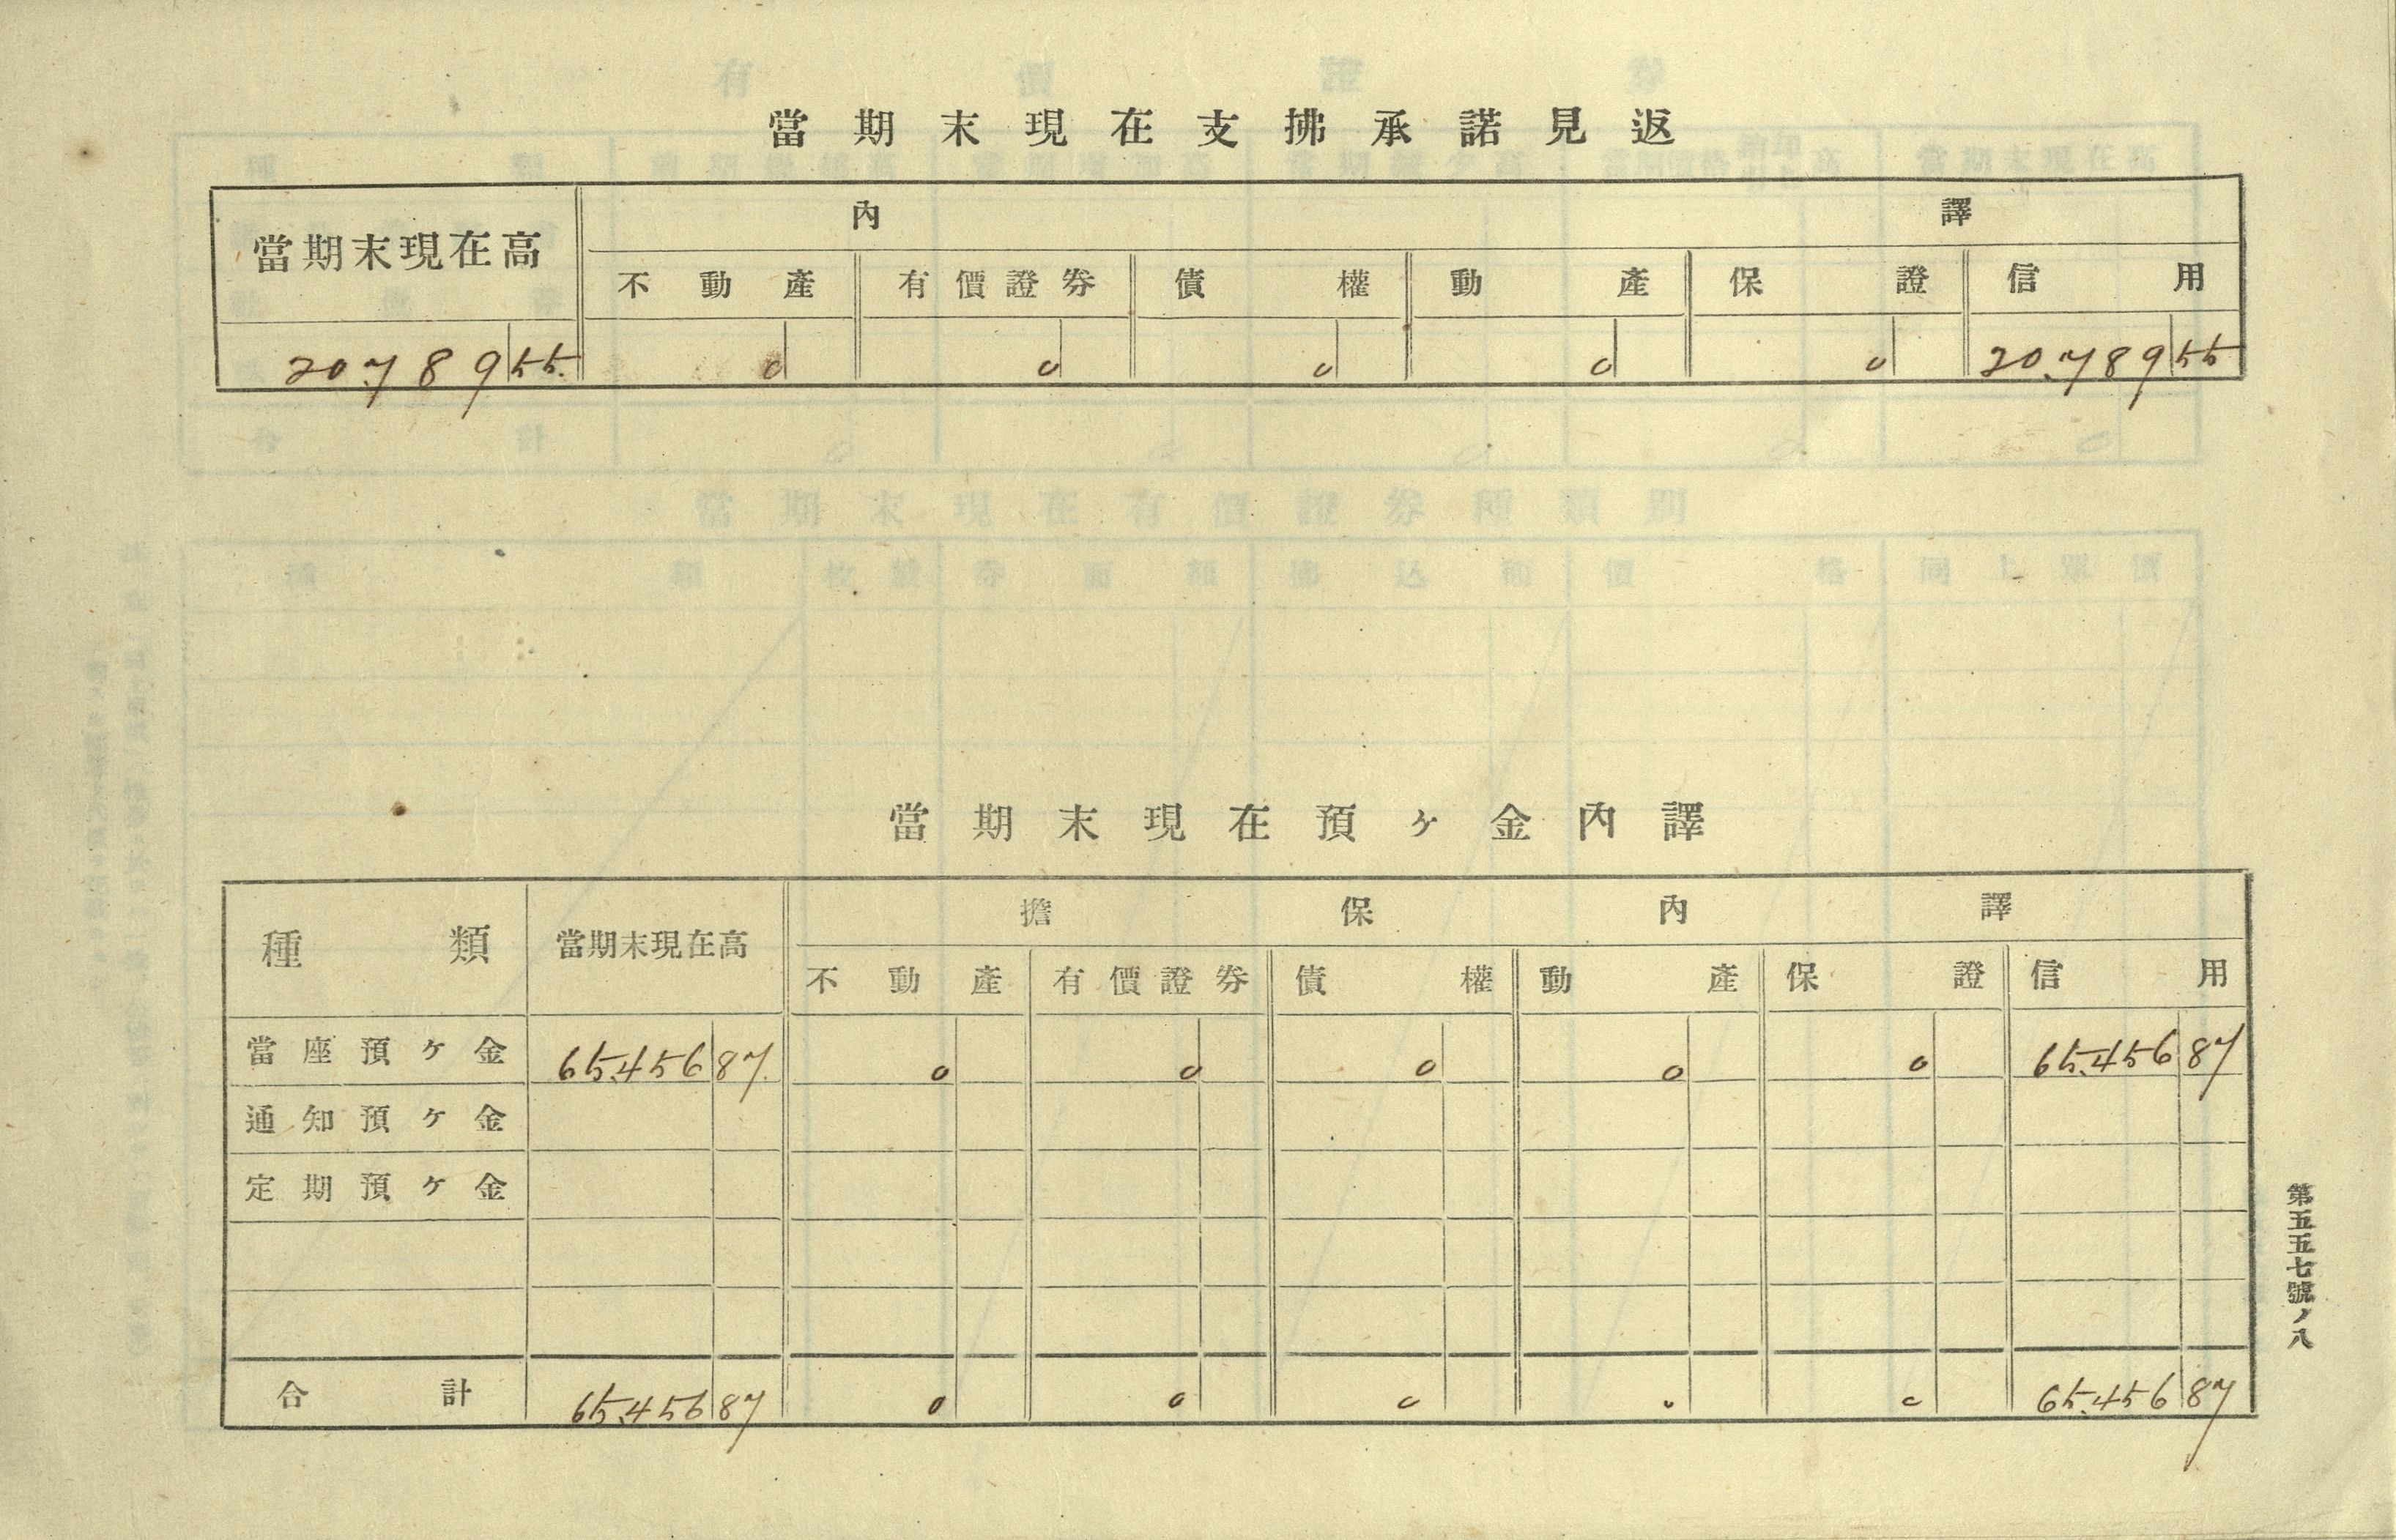 當期末現在支拂承諾見返
當期末現在高 內譯
不動產 有價證券 債權 動產 保證 信用
20.789 55. 0 0 0 0 0 20.789 55
當期末現在預ヶ金內譯
種類 當期末現在高 擔保內譯
不動產 有價證券 債權 動產 保證 信用
當座預ヶ金 65.456 87. 0 0 0 0 0 65.456 87
通知預ヶ金
定期預ヶ金
合計 65.456 87 0 0 0 0 0 65.456 87
第五五七號ノ八